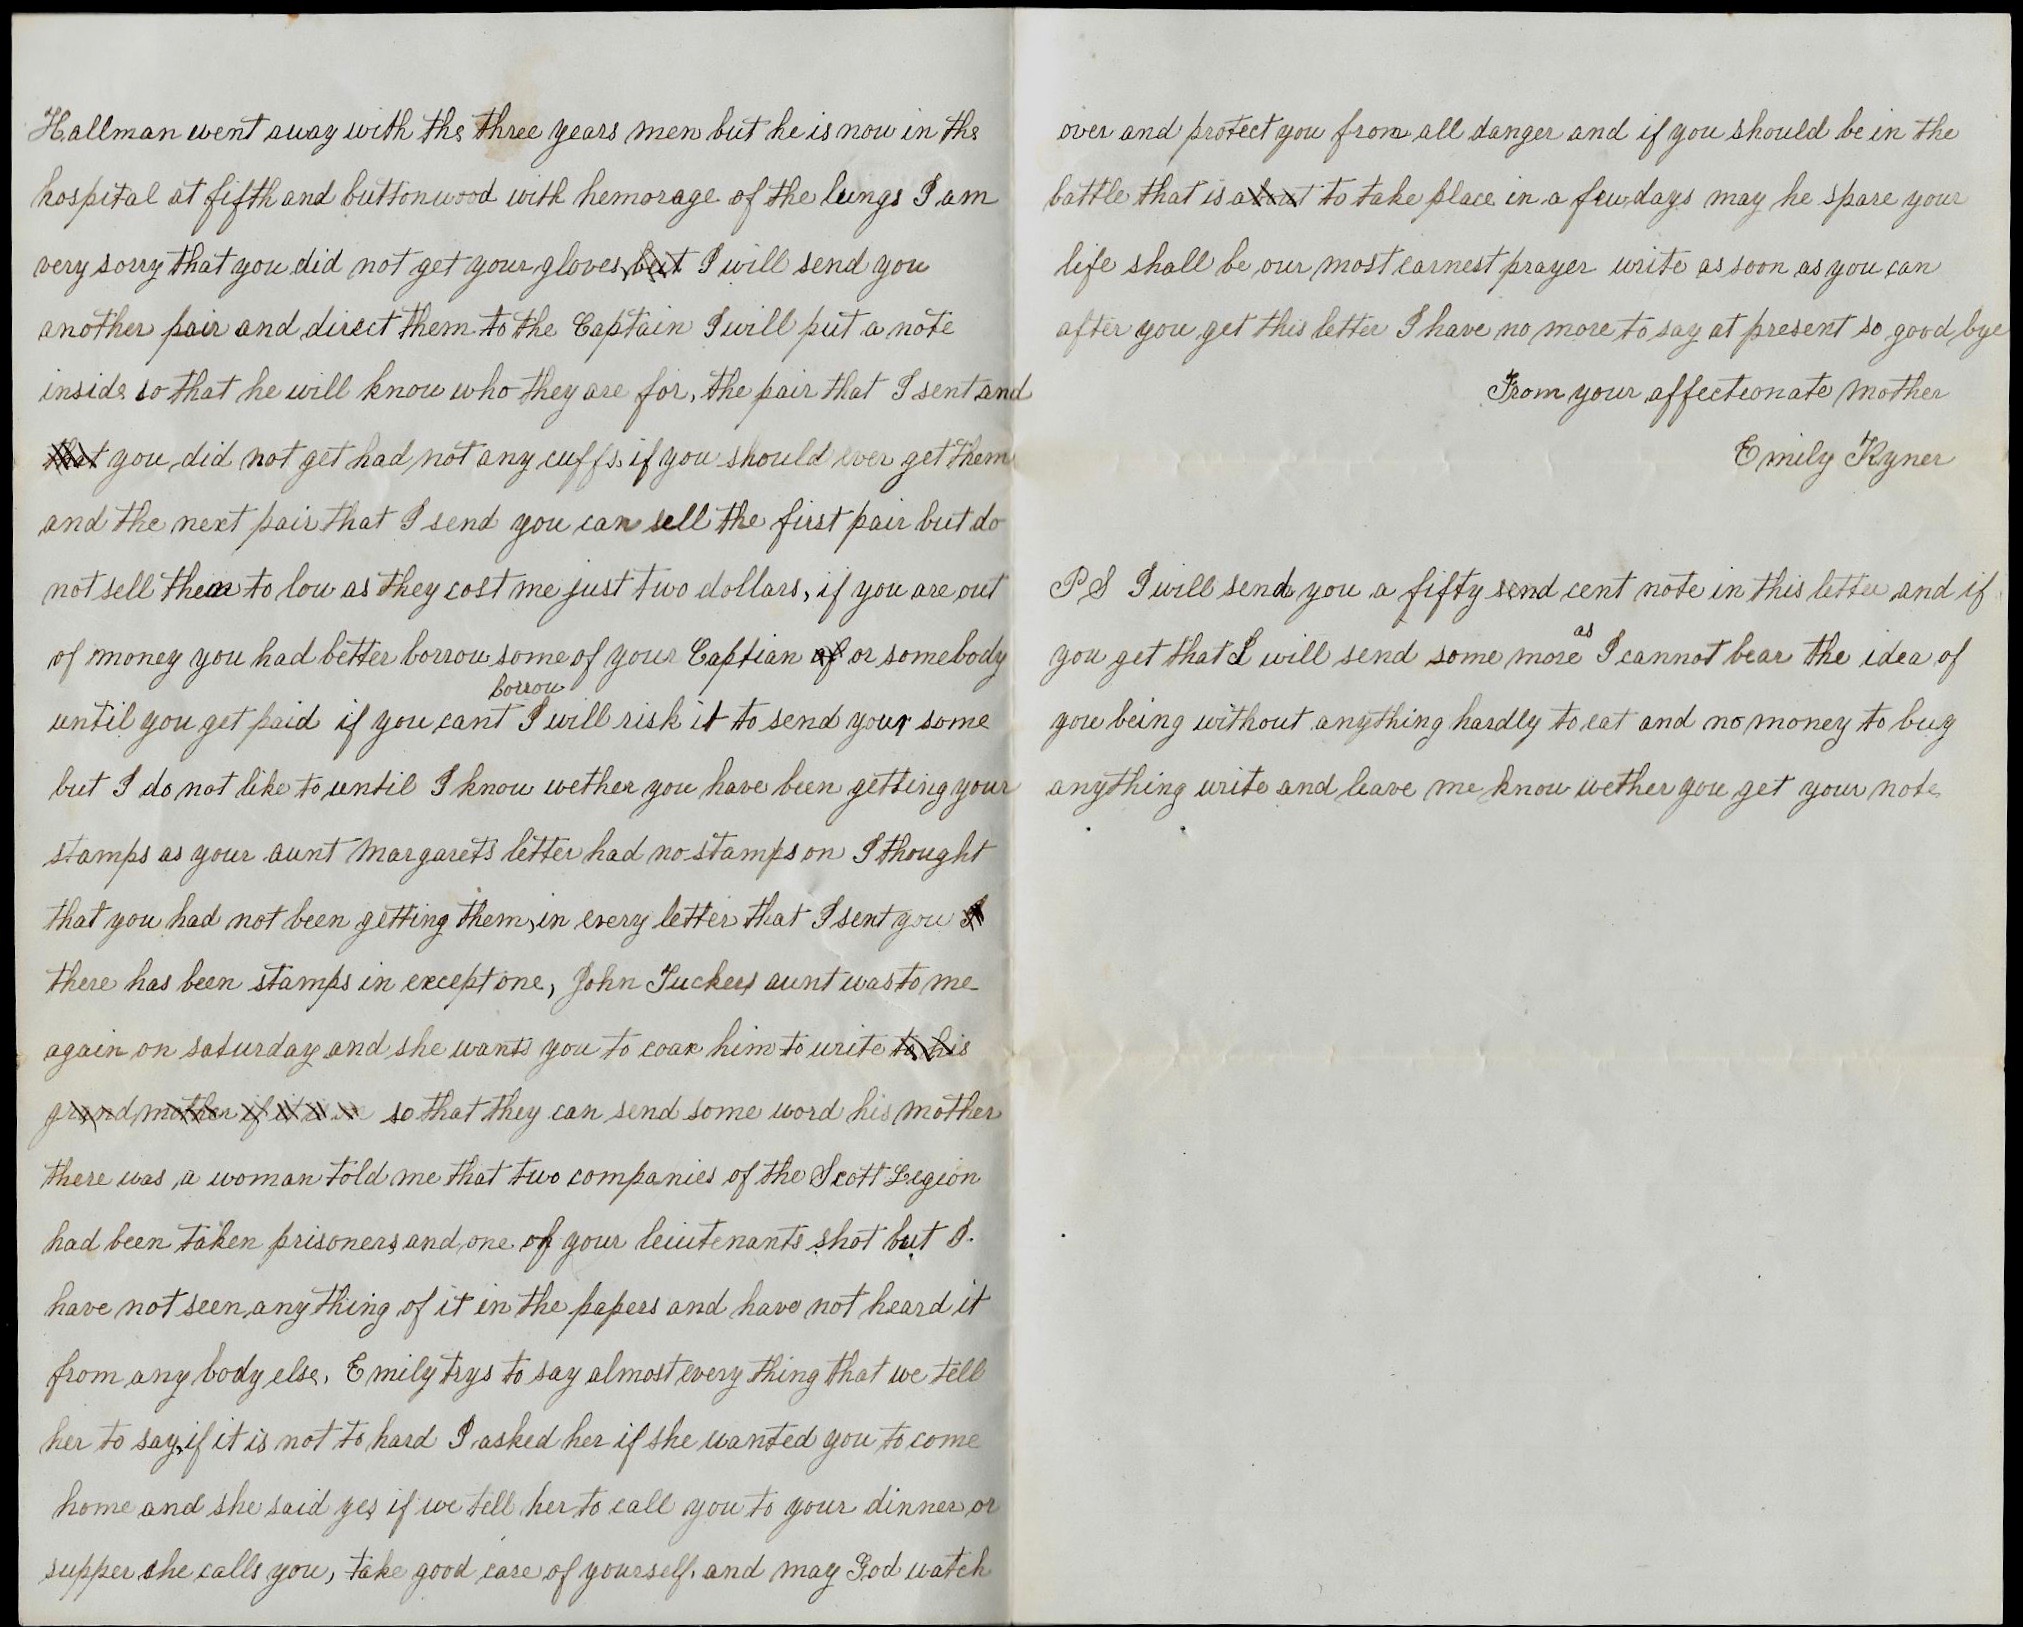 Hallman went away with the three years men but he is now in the
hospital at fifth and buttonwood with hemorage of the lungs I am
very sorry that you did not get your gloves, but I will send you
another pair and direct them to the Captain I will put a note
inside so that he will know who they are for, the pair that I sent and
that you did not get had not any cuffs. if you should ever get them
and the next pair that I send you can sell the first pair but do
not sell them to low as they cost me just two dollars, if you are out
of money you had better borrow some of your Captian of or somebody
borrow
until you get paid if you cant I will risk it to send your some
but I do not like to until I know wether you have been getting your
stamps as your aunt Margarets letter had no stamps on I thought
that you had not been getting them, in every letter that I sent you I
there has been stamps in except one, John Tuckers aunt was to me
again on saturday and she wants you to coax him to write to his
grandmother if it so that they can send some word his mother
there was a woman told me that two companies of the Scott Legion
had been taken prisoners and one of your leiutenants shot but I
have not seen any thing of it in the papers and have not heard it
from any body else. Emily trys to say almost every thing that we tell
her to say, if it is not to hard I asked her if she wanted you to come
home and she said yes if we tell her to call you to your dinner or
supper she calls you, take good care of yourself. and may God watch
over and protect you from all danger and if you should be in the
battle that is about to take place in a few days may he spare your
life shall be our most earnest prayer write as soon as you can
after you get this letter I have no more to say at present so good bye
From your affectionate Mother
Emily Ryner
P S I will send you a fifty send cent note in this letter and if
as
you get that I will send some more I cannot bear the idea of
you being without anything hardly to eat and no money to buy
anything write and leave me know wether you get your note